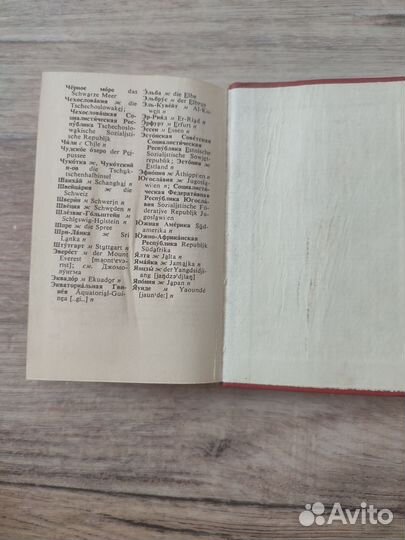 Чёрное море das
Schwarze Meer
Чехословакия ж die
Tschechoslowakei;
Чехословацкая Со-
циалистическая Рес-
публика Tschechoslo-
wakische Sozialisti-
sche Republik
Чили с Chile n
Чудское озеро der Pei-
pussee
Чукотка ж, Чукотский
п-ов die Tschuk-
tschenhalbinsel
Шанхай м Schanghai n
Швейцария ж die
Schweiz
Шверин м Schwerin n
Швеция ж Schweden n
Шлезвиг-Гольштейн м
Schleswig-Holstein n
Шпре ж die Spree
Шри-Ланка ж Sri
Lanka n
Штутгарт м Stuttgart n
Эверест м der Mount
Everest
см. Джомо-
лунгма
Эквадор м Ekuador n
Экваториальная Гви-
нея Äquatorial-Gui-
nea [..gi..] n
Эльба ж die Elbe
Эльбрус м der Elbrus
Эль-Кувейт м Al-Ku-
Эр-Рияд м Er-Riad n
Эрфурт м Erfurt n
Эссен м Essen n
Эстонская Советская
Социалистическая
Республика Estnische
Sozialistische Sowjet-
republik; Эстония ж
Estland n
Эфиопия ж Äthiopien n
Югославия ж Jugosla-
wien n; Социалисти-
ческая Федеративная
Республика Югосла-
вия Sozialistische Fö-
derative Republik Ju-
goslawien
Южная Америка Süd-
amerika n
Южно-Африканская
Республика Republik
Südafrika
Ялта ж Jalta n
Ямайка ж Jamaika n
Янцзы ж der Yangdsidji-
ang
Япония ж Japan n
Яунде м Yaoundé
[jaun'de:] n
Avito